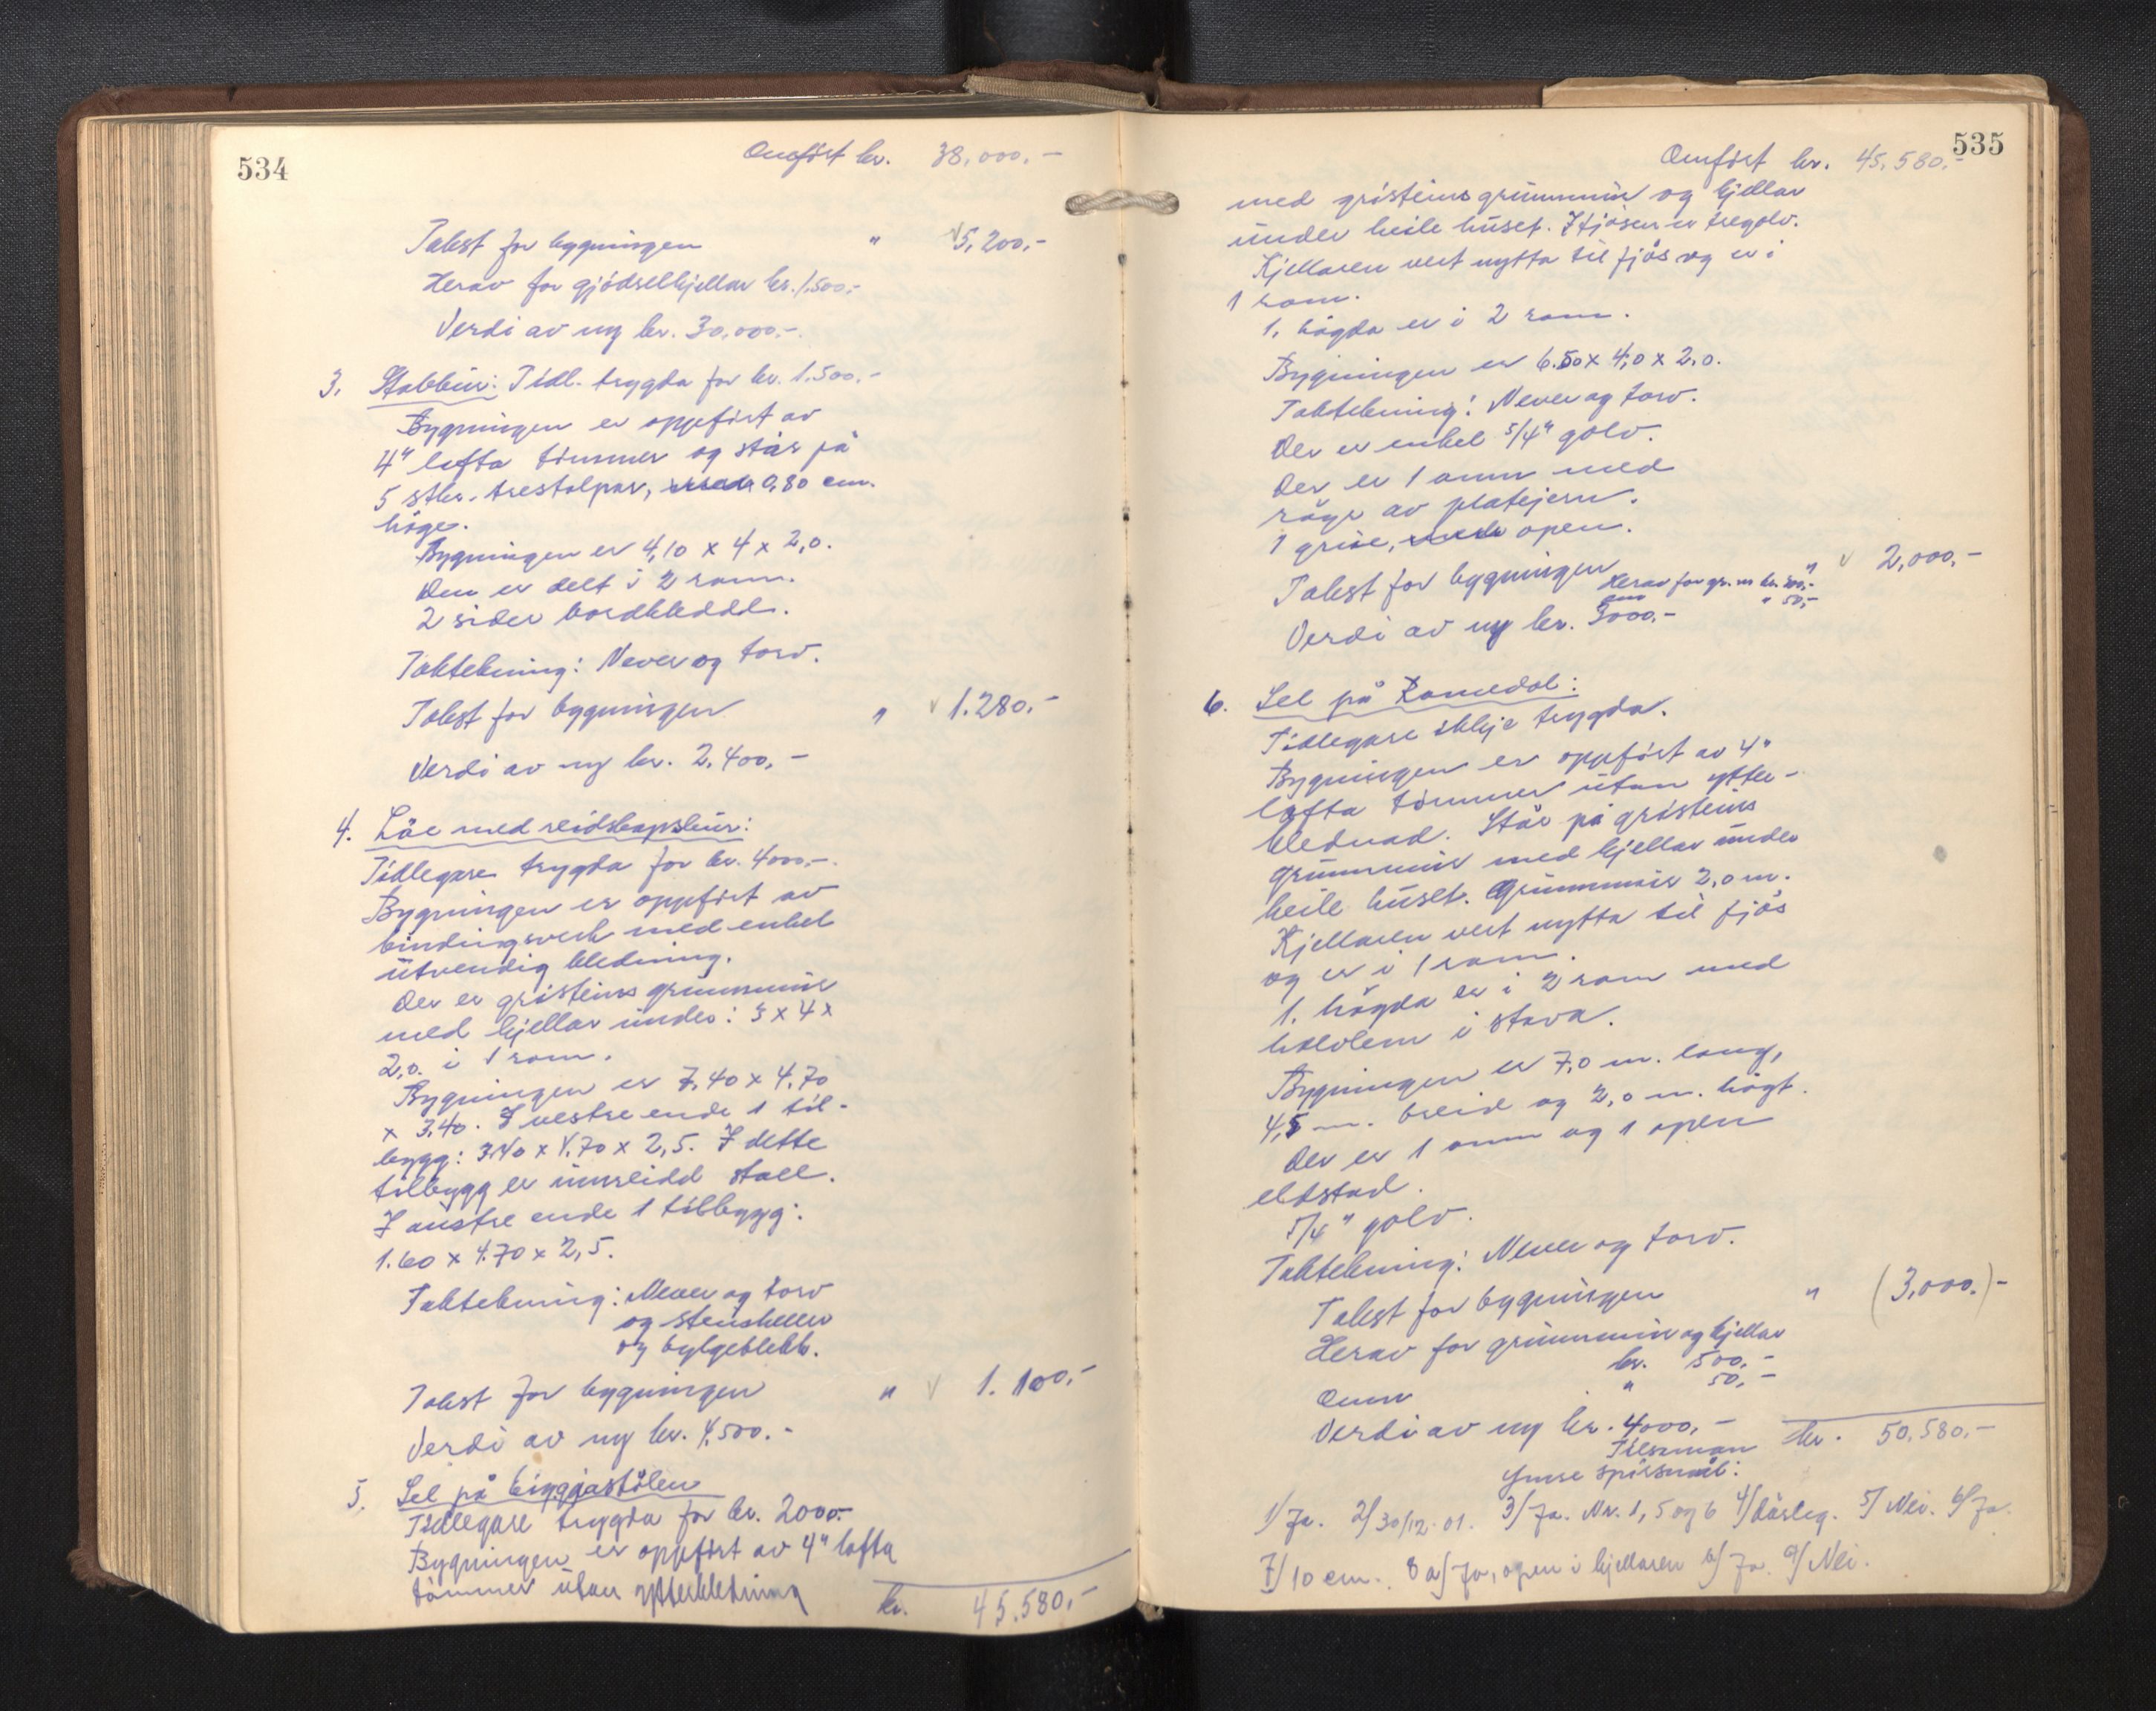 534
Omført kr. 38,000.-
Takst for bygningen " 5,200,-
Herav for gjødselkjellar kr. 1,500.-
Verdi av ny kr. 30,000.-
3. Stabbur: Tidl. trygda for kr. 1.500.-
Bygningen er oppført av
4" lafta tømmer og står på
5 stkr. trestolpar, 0,80 cm.
høge.
Bygningen er 4,10 x 4 x 2,0.
Den er delt i 2 romm.
2 sider bordkledde.
Taktekning: Never og torv.
Takst for bygningen " 1.280.-
Verdi av ny kr. 2.400,-
4. Løe med reidskapsbur:
Tidlegare trygda for kr. 4000.-
Bygningen er oppført av
bindingsverk med enkel
utvendig kledning.
Der er gråsteins grunnmur
med kjellar under: 3 x 4 x
2,0. i 1 rom.
Bygningen er 7,40 x 4.70
x 3,40. I vestre ende 1 til-
bygg: 3.40 x 4.70 x 2,5. I dette
tilbygg er innreidd stall.
I austre ende 1 tilbygg:
1.60 x 4.70 x 2,5.
Taktekning: Never og torv
og steinheller
og bylgeblekk.
Takst for bygningen " 1.100.-
Verdi av ny kr. 4,500.-
5. Sel på
Tidlegare trygda for kr. 2000.-
Bygningen er oppført av 4" lafta
tømmer utan ytterkledning
kr. 45.580,-
535
Omført kr. 45,580.-
med gråsteins grunnmur og kjellar
under heile huset. I fjøsen er tregolv.
Kjellaren vert nytta til fjøs og er i
1 rom.
1. høgda er i 2 rom.
Bygningen er 6.50 x 4,0 x 2,0.
Taktekning: Never og torv.
Der er enkel 5/4" golv.
Der er 1 omn med
røyr av platejern.
1 grue, open.
Takst for bygningen " 2,000,-
Herav for gr.m kr. 300,-
omn " 50,-
Verdi av ny kr. 3000.-
6. Sel på Ramedal:
Tidlegare ikkje trygda.
Bygningen er oppført av 4"
lafta tømmer utan ytter-
klednad. Står på gråsteins
grunnmur med kjellar under
heile huset. Grunnmur 2,0 m.
Kjellaren vert nytta til fjøs
og er i 1 rom.
1. høgda er i 2 rom med
halvlem i stova.
Bygningen er 7,0 m. lang,
4,5 m. breid og 2,0 m. høgt.
Der er 1 omn og 1 open
eldstad.
5/4" golv.
Taktekning: Never og torv.
Takst for bygningen " (3,000.)-
Herav for grunnmur og kjellar
kr. 500,-
Omn " 50,-
Verdi av ny kr. 4000,-
kr. 50,580.-
Tilsaman
Ymse spørsmål:
1/ Ja. 2/ 30/12-01. 3/ Ja. Nr. 1, 5 og 6 4/ Dårleg. 5/ Nei. 6/ Ja.
7/ 10 cm. 8 a/ Ja, open i kjellaren b/ Ja. 9/ Nei.